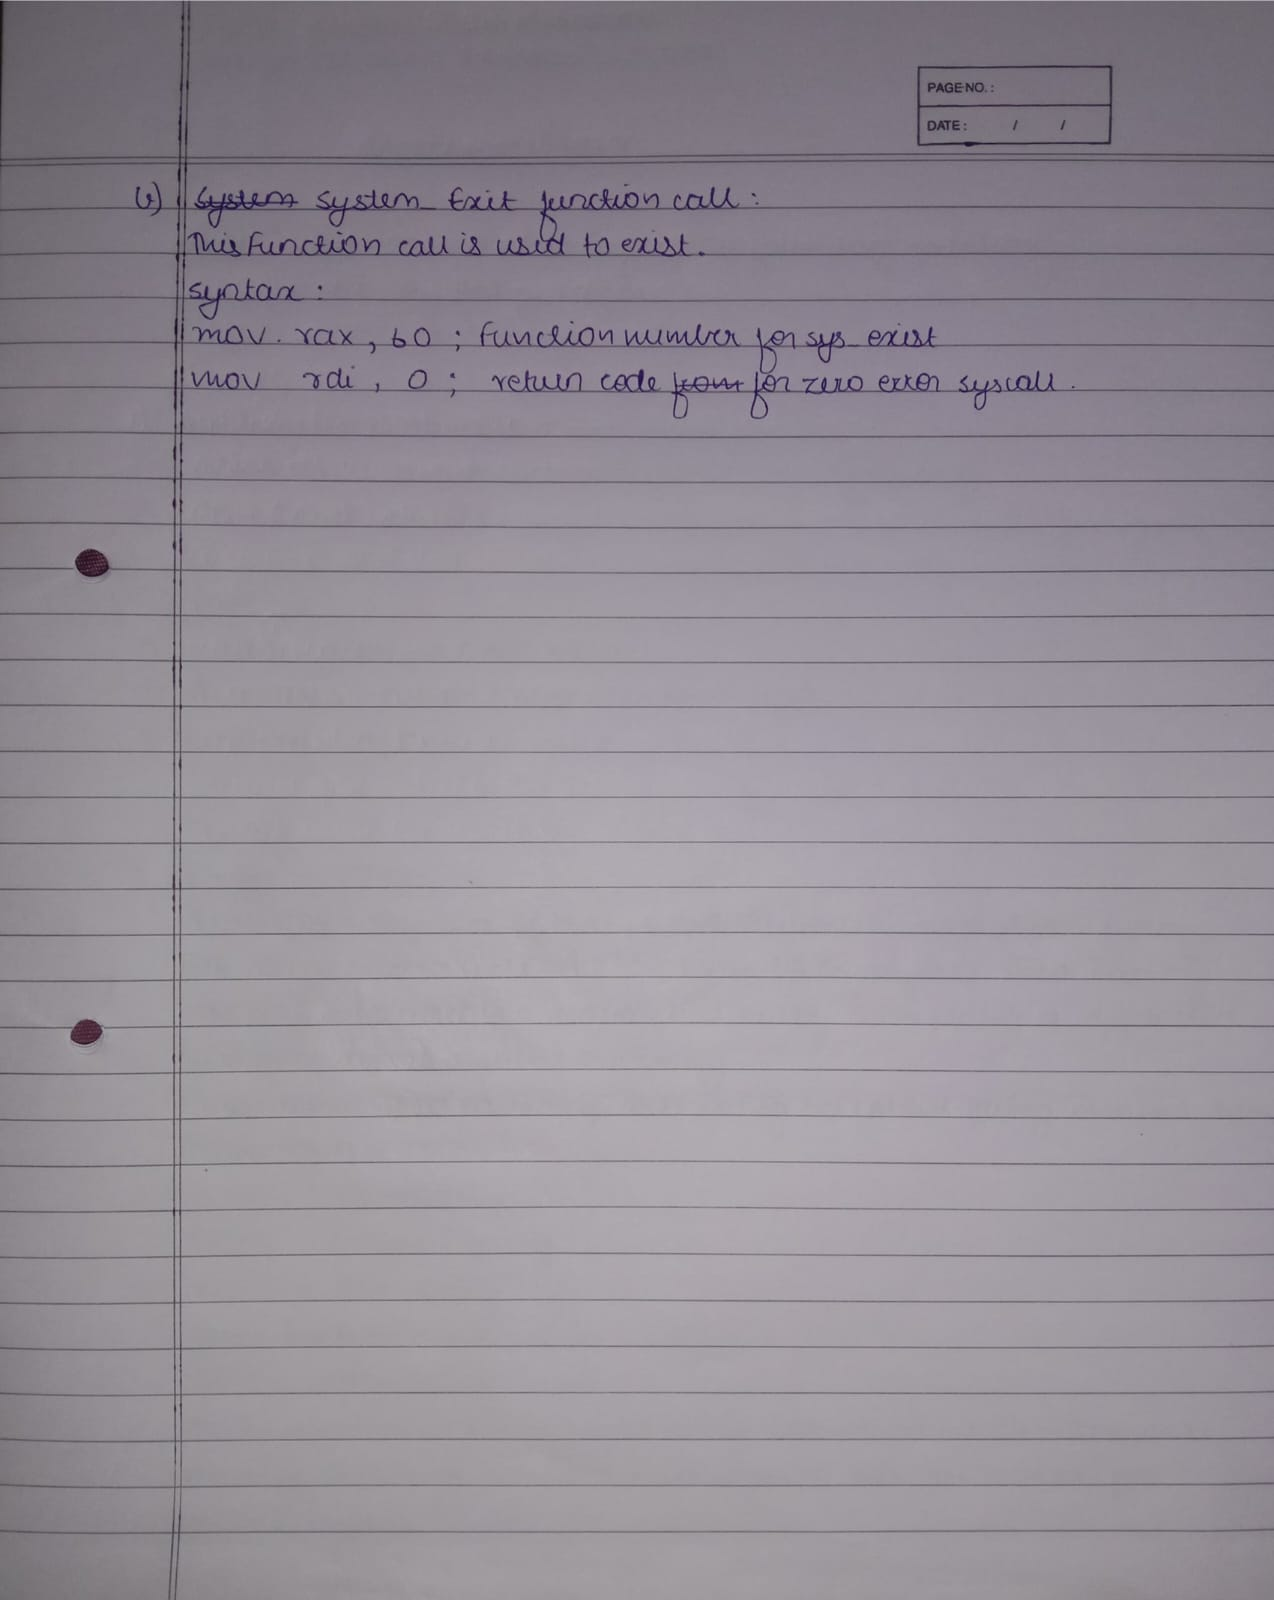 PAGE NO.:
DATE: / /
6) System System Exit function call:
This function call is used to exist.
syntax:
mov. rax, 60 ; function number for sys_exist
mov rdi, 0 ; return code from for zero error syscall.